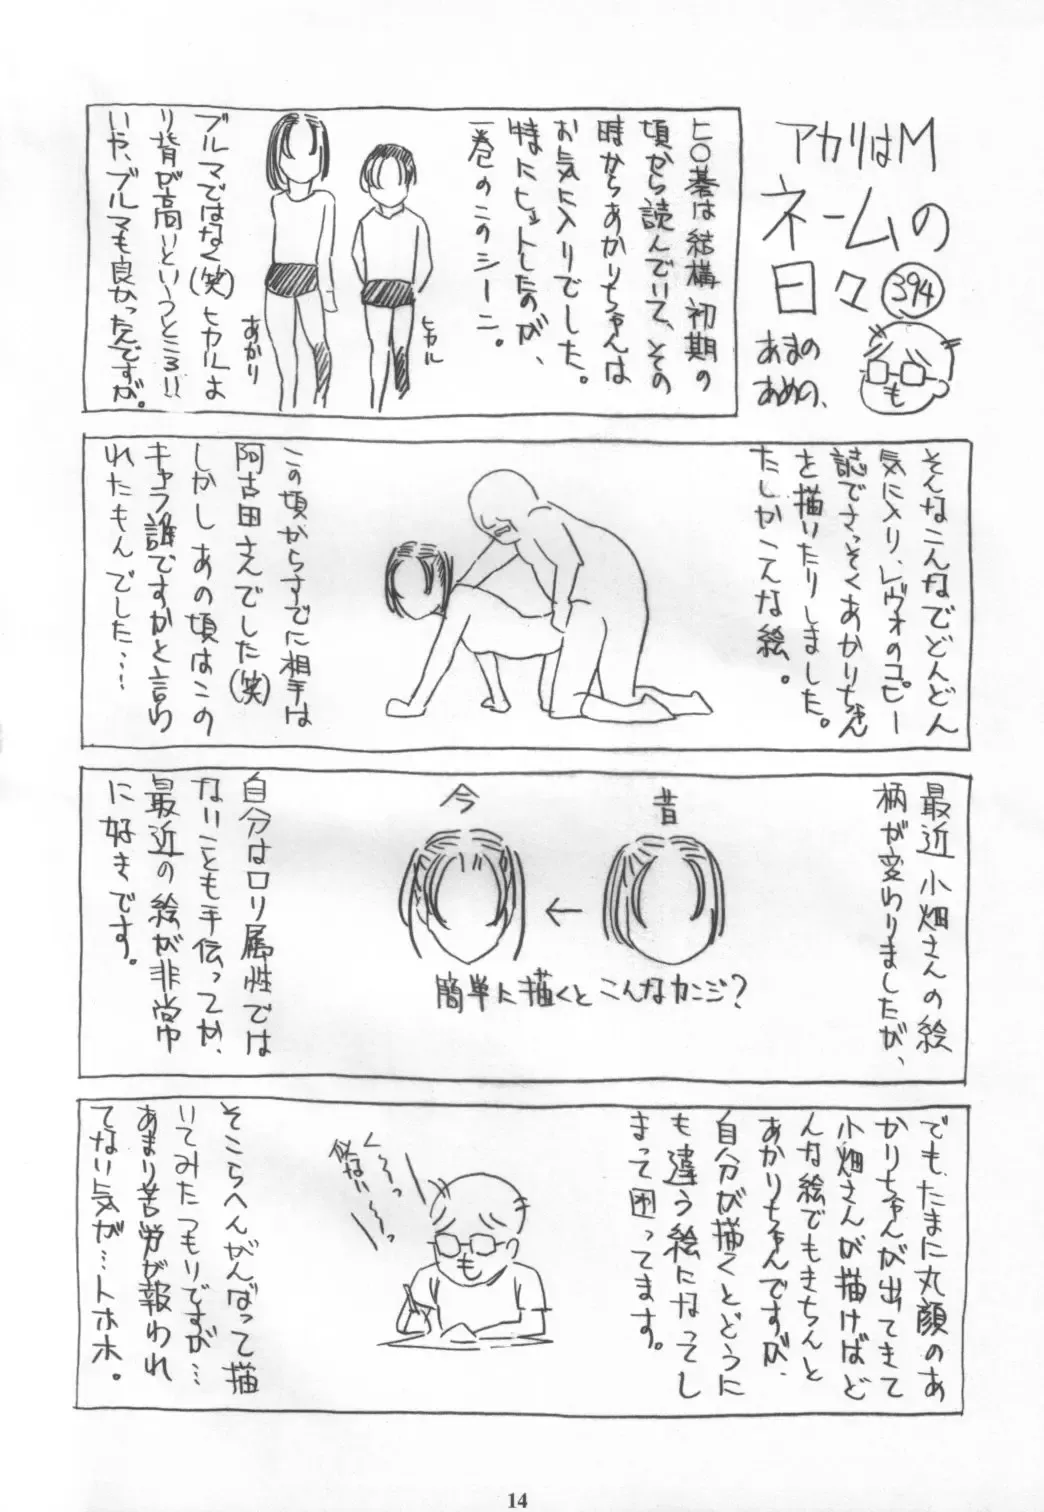 アカリはM
ネームの
日々
394
あまの
あめの、
ヒ〇碁は結構初期の
頃から読んでいて、その
時からあかりちゃんは
お気に入りでした。
特にヒットしたのが、
一巻のこのシーン。
ヒカル
あかり
ブルマではなく(笑)ヒカルよ
り背が高いというところ!!
いや、ブルマも良かったんですが。
そんなこんなでどんどん
気に入り、レヴォのコピー
誌でさっそくあかりちゃん
を描いたりしました。
たしかこんな絵。
この頃からすでに相手は
阿古田さんでした(笑)
しかしあの頃はこの
キャラ誰ですかと言わ
れたもんでした…
最近小畑さんの絵
柄が変わりましたが、
昔
←
今
簡単に描くとこんなカンジ?
自分はロリ属性では
ないことも手伝ってか、
最近の絵が非常
に好きです。
でも、たまに丸顔のあ
かりちゃんが出てきて
小畑さんが描けばど
んな絵でもきちんと
あかりちゃんですが、
自分が描くとどうに
も違う絵になってし
まって困ってます。
く〜〜っ
似ない〜〜っ
そこらへんがんばって描
いてみたつもりですが…
あまり苦労が報われ
てない気が…トホホ。
14